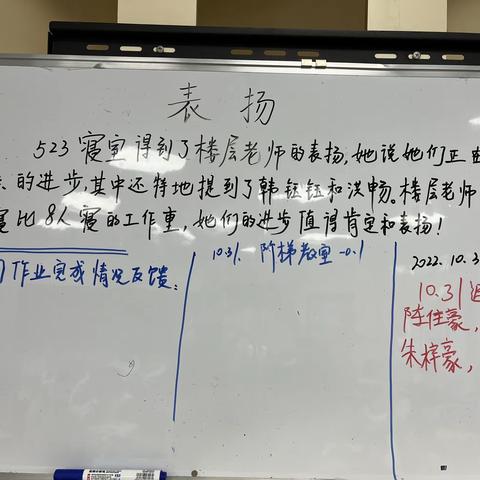 表扬
523寝室得到了楼层老师的表扬,她说她们正在
的进步,其中还特地提到了韩钰钰和洪畅。楼层老师
寝比8人寝的工作重,她们的进步值得肯定和表扬!
作业完成情况反馈:
10.31. 阶梯教室 -0.1
2022.10.3
10.31
陈佳豪,
朱梓豪,